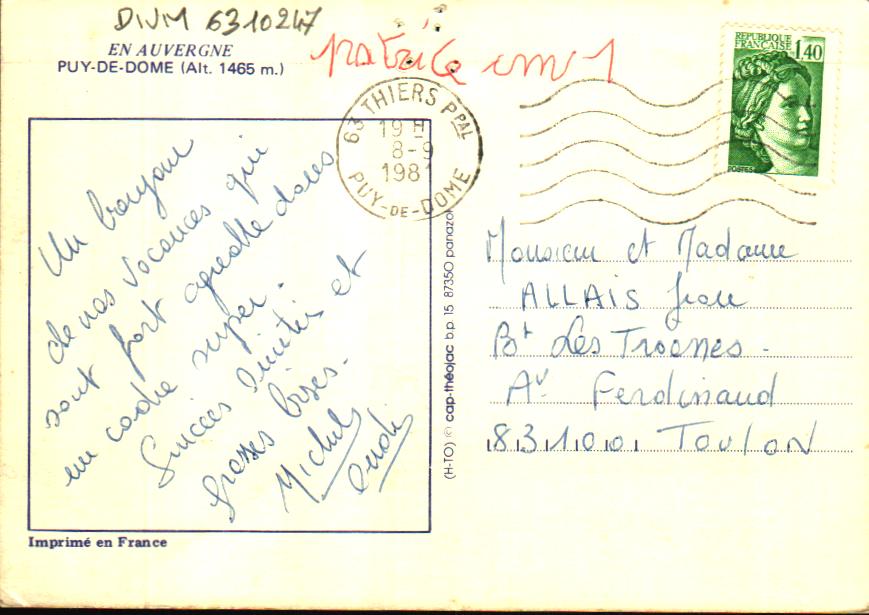 DIVM 6310247
EN AUVERGNE
PUY-DE-DOME (Alt. 1465 m.)
patrice
63 THIERS PPAL
19 H
8-9
1981
PUY-DE-DOME
REPUBLIQUE
FRANÇAISE
1,40
POSTES
Un bonjour
de nos vacances qui
sont fort agréable dans
un cadre super.
Sincères amitiés et
grosses bises.
Michel
Imprimé en France
(H-TO) © cap-théojac b.p. 15 87350 panazol
Monsieur et Madame
ALLAIS Jean
Bt Les Troenes -
Av Ferdinand
83100 TOULON